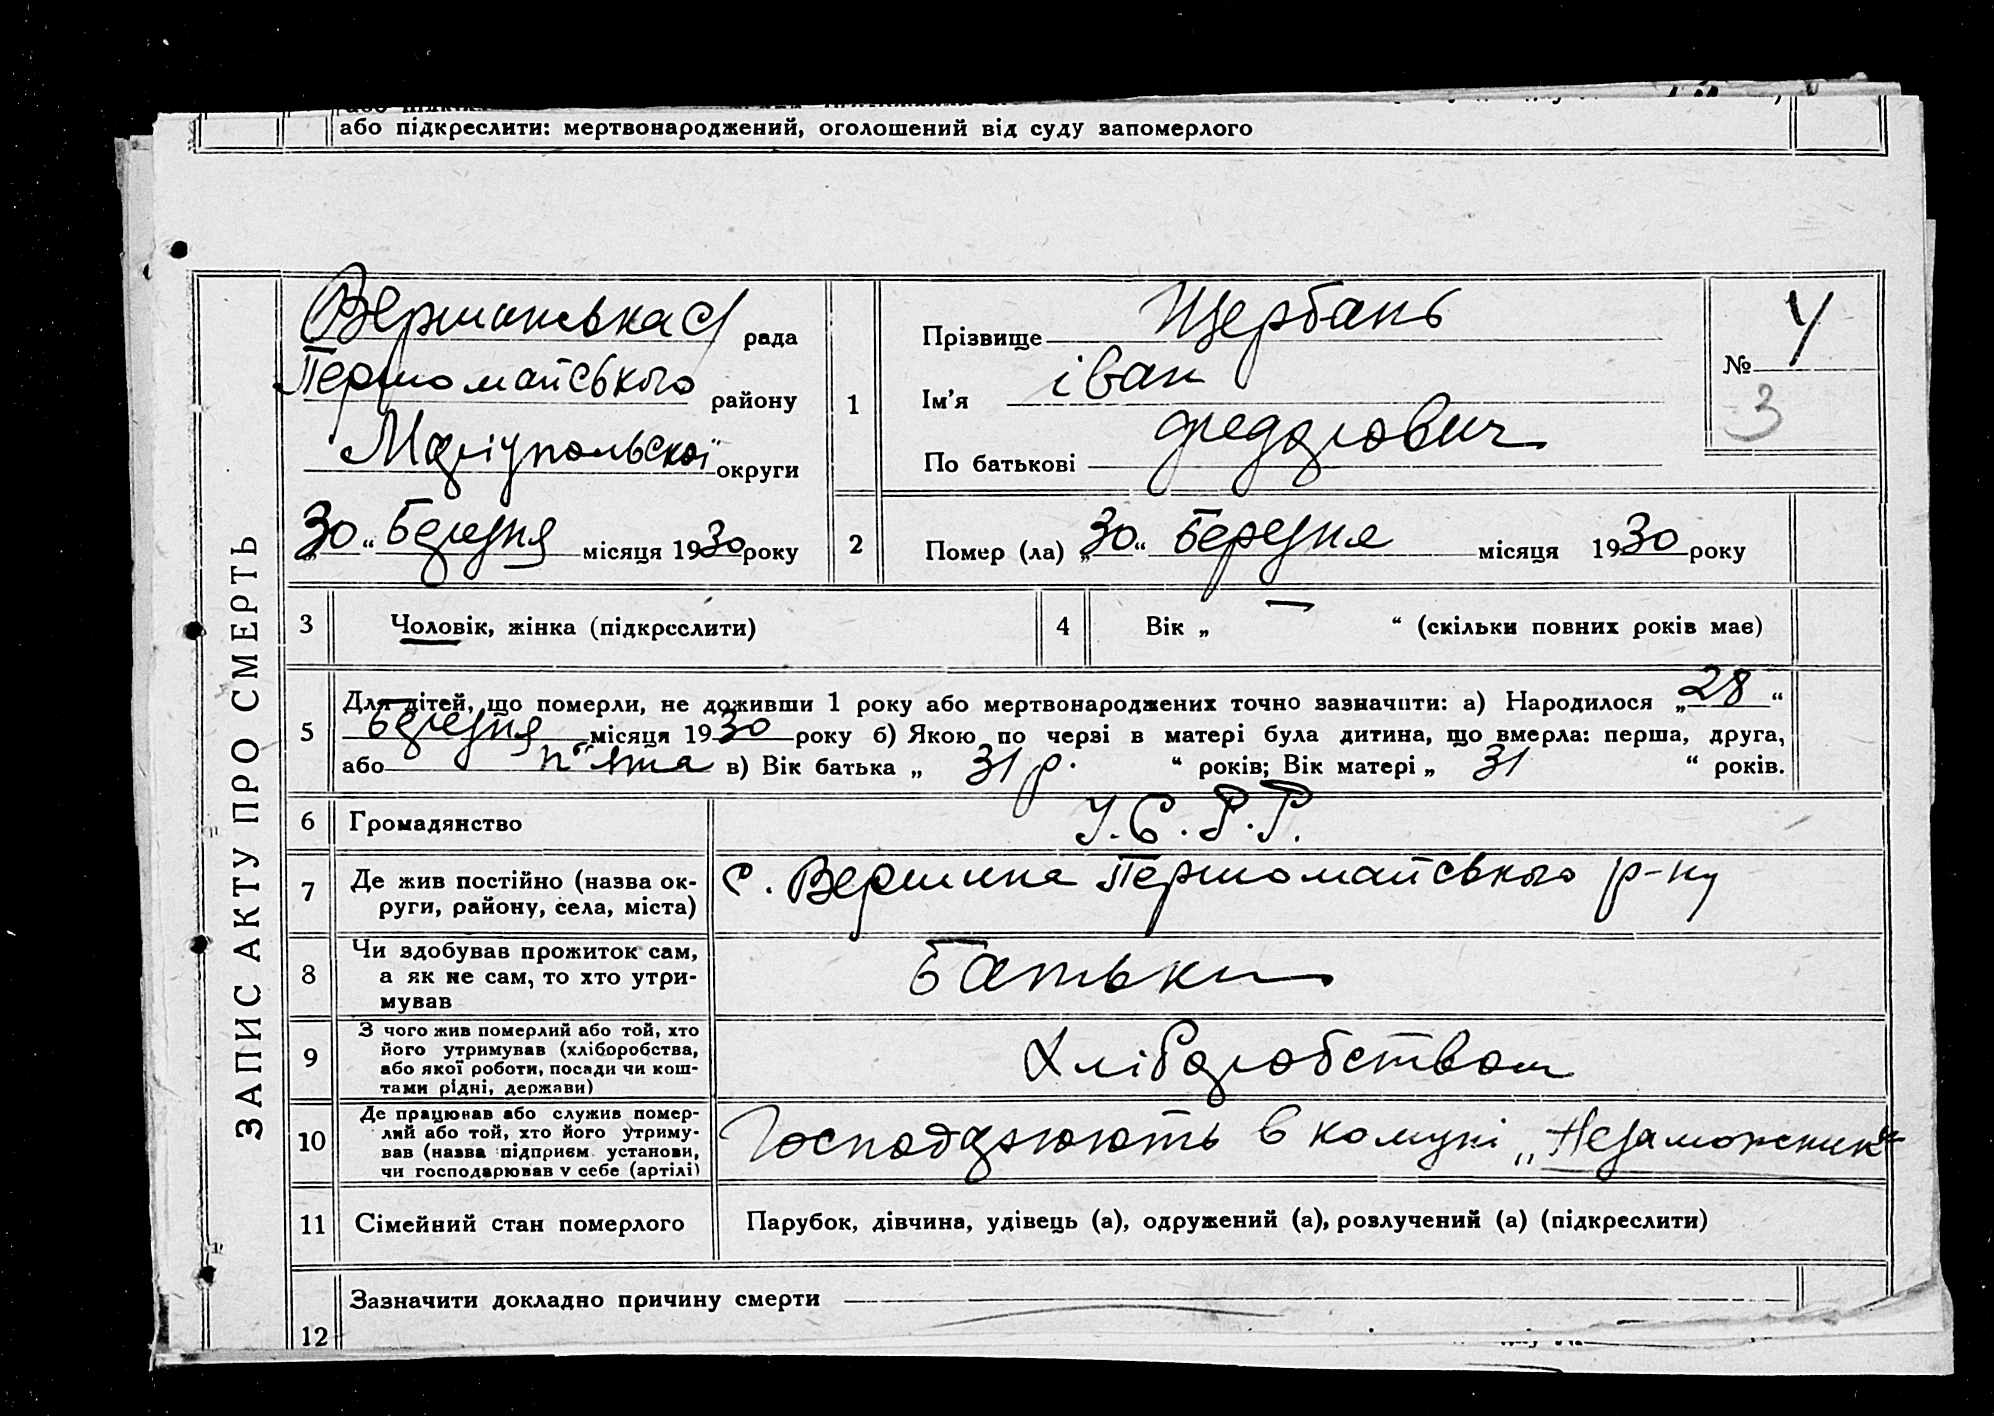 або підкреслити: мертвонароджений, оголошений від суду запомерлого
ЗАПИС АКТУ ПРО СМЕРТЬ
Вершинська с/ рада
Першомайського району
Маріупольскої округи
„30“ Березня місяця 1930 року
1
Прізвище Щербань
Ім’я іван
По батькові федорович
№ 4
3
2
Помер (ла) „30“ Березня місяця 1930 року
3 Чоловік, жінка (підкреслити)
4 Вік „ — “ (скільки повних років має)
5
Для дітей, що померли, не доживши 1 року або мертвонароджених точно зазначити: а) Народилося „28“
Березня місяця 1930 року б) Якою по черзі в матері була дитина, що вмерла: перша, друга,
або п"ята в) Вік батька „ 31 р. “ років; Вік матері „ 31 “ років.
6 Громадянство У.С.Р.Р.
7
Де жив постійно (назва ок-
руги, району, села, міста)
с. Вершина Першомайського р-ну
8
Чи здобував прожиток сам,
а як не сам, то хто утри-
мував
Батьки
9
З чого жив померлий або той, хто
його утримував (хліборобства,
або якої роботи, посади чи кош-
тами рідні, держави)
Хліборобством
10
Де працював або служив помер-
лий або той, хто його утриму-
вав (назва підприєм. установи,
чи господарював у себе (артілі)
Господарюють в комуні „Незаможник“
11 Сімейний стан померлого Парубок, дівчина, удівець (а), одружений (а), розлучений (а) (підкреслити)
12
Зазначити докладно причину смерти